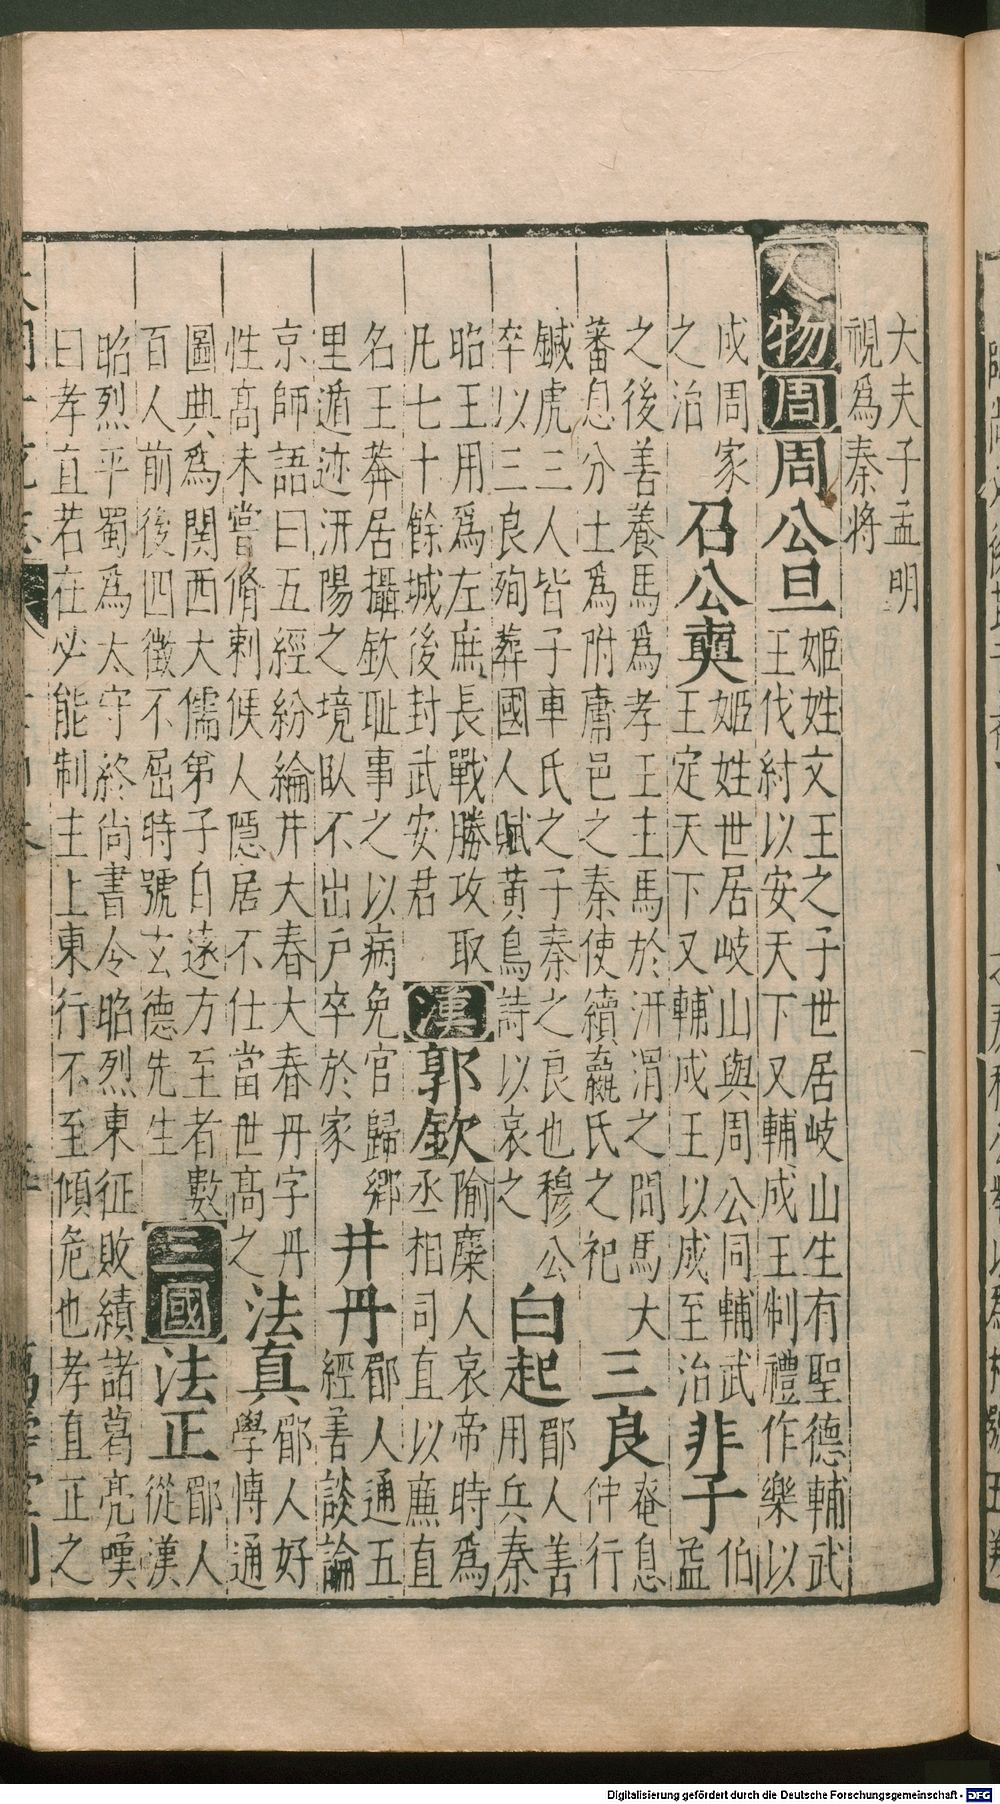 大夫子孟明
視爲秦將
人物 周 周公旦
姬姓文王之子世居岐山生有聖德輔武
王伐紂以安天下又輔成王制禮作樂以
成周家
之治
召公奭
姬姓世居岐山與周公同輔武
王定天下又輔成王以成至治
非子
伯
益
之後善養馬爲孝王主馬於汧渭之間馬大
蕃息分土爲附庸邑之秦使續嬴氏之祀
三良
奄息
仲行
鍼虎三人皆子車氏之子秦之良也穆公
卒以三良殉葬國人賦黃鳥詩以哀之
白起
郿人善
用兵秦
昭王用爲左庶長戰勝攻取
凡七十餘城後封武安君
漢 郭欽
隃麋人哀帝時爲
丞相司直以廉直
名王莽居攝欽耻事之以病免官歸鄉
里遁迹汧陽之境臥不出戶卒於家
井丹
郿人通五
經善談論
京師語曰五經紛綸井大春大春丹字丹
性高未嘗脩刺候人隱居不仕當世高之
法真
郿人好
學博通
圖典爲関西大儒弟子自遠方至者數
百人前後四徵不屈時號玄德先生
三國 法正
郿人
從漢
昭烈平蜀爲太守於尚書令昭烈東征敗績諸葛亮嘆
曰孝直若在必能制主上東行不至傾危也孝直正之
Digitalisierung gefördert durch die Deutsche Forschungsgemeinschaft - DFG